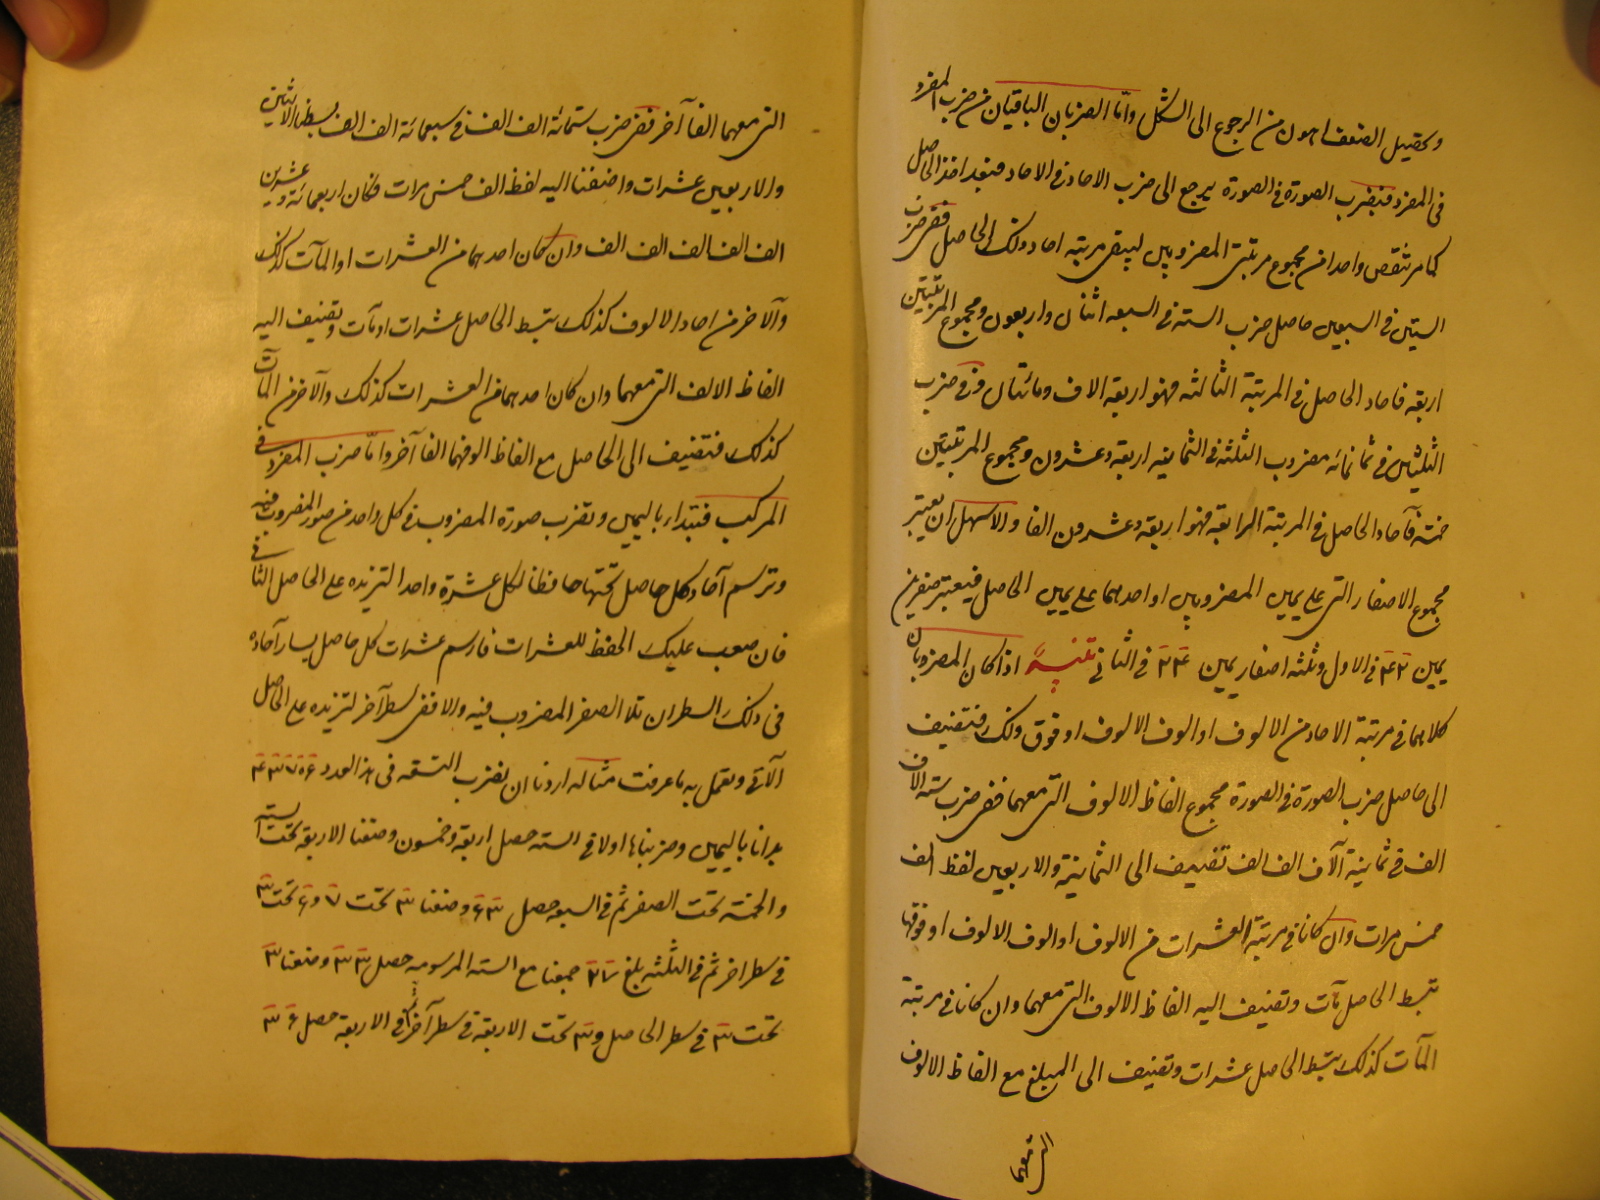 وتحصيل الضعف اهون من الرجوع الى الشكل واما الضربان الباقيان من ضرب المفرد
فى المفرد فبضرب الصورة فى الصورة يرجع الى ضرب الاحاد فى الاحاد فبعد اخذ الحاصل
كما مر تنقص واحدا من مجموع مرتبتى المضروبين ليبقى مرتبة احاد ذلك الحاصل ففى ضرب
الستين فى السبعين حاصل ضرب الستة فى السبعة اثنان واربعون ومجموع المرتبتين
اربعة فاحاد الحاصل فى المرتبة الثالثة فهو اربعة الاف ومائتان وفى ضرب
الثلثين فى ثمانمائة مضروب الثلثة فى الثمانية اربعة وعشرون ومجموع المرتبتين
خمسة فآحاد الحاصل فى المرتبة الرابعة فهو اربعة وعشرون الفا والاسهل ان يعتبر
مجموع الاصفار التى على يمين المضروبين او احدهما على يمين الحاصل فيعتبر صفرين
يمين ۴۲ فى الاول وثلثة اصفار يمين ۲۴ فى الثانى تنبيه اذا كان المضروبان
كلاهما فى مرتبة الاحاد من الالوف او الوف الالوف او فوق ذلك فتضيف
الى حاصل ضرب الصورة فى الصورة مجموع الفاظ الالوف التى معهما ففى ضرب ستة الاف
الف فى ثمانية آلاف الف الف تضيف الى الثمانية والاربعين لفظ الف
خمس مرات وان كانا فى مرتبة العشرات من الالوف او الوف الالوف او فوقها
تبسط الحاصل مآت وتضيف اليه الفاظ الالوف التى معهما وان كانا فى مرتبة
المآت كذلك تبسط الحاصل عشرات وتضيف الى المبلغ مع الفاظ الالوف
التى معهما
التى معهما الفا آخر ففى ضرب ستمائة الف الف فى سبعمائة الف الف بسطنا الاثنين
والاربعين عشرات واضفنا اليه لفظ الف خمس مرات فكان اربعمائة وعشرين
الف الف الف الف الف وان كان احدهما من العشرات او المآت كذلك
والآخر من احاد الالوف كذلك تبسط الحاصل عشرات او مآت وتضيف اليه
الفاظ الالف التى معهما وان كان احدهما من العشرات كذلك والآخر من المآت
كذلك فتضيف الى الحاصل مع الفاظ الوفهما الفا آخر واما ضرب المفرد فى
المركب فتبتدأ باليمين وتضرب صورة المضروب فى كل واحد من صور المضروب فيه
وترسم آحاد كل حاصل تحتها حافظا لكل عشرة واحدا لتزيده على الحاصل الثانى
فان صعب عليك الحفظ للعشرات فارسم عشرات كل حاصل يسار آحاده
فى ذلك السطر ان تلا الصفر المضروب فيه والا ففى سطر آخر لتزيده على الحاصل
الآتى وتعمل به ما عرفت مثاله اردنا ان نضرب التسعة فى هذا العدد ۴۳۷۰۶
بدانا باليمين وضربناها اولا فى الستة حصل اربعة وخمسون وضعنا الاربعة تحت الستة
والخمسة تحت الصفر ثم فى السبعة حصل ۶۳ وضعنا ۳ تحت ۷ و ۶ تحت ۳
فى سطر اخر ثم فى الثلثة بلغ ۲۷ جمعنا مع الستة المرسومة حصل ۳۳ وضعنا ۳
تحت ۳ فى سطر الحاصل و ۳ تحت الاربعة فى سطر آخر ثم فى الاربعة حصل ۳۶